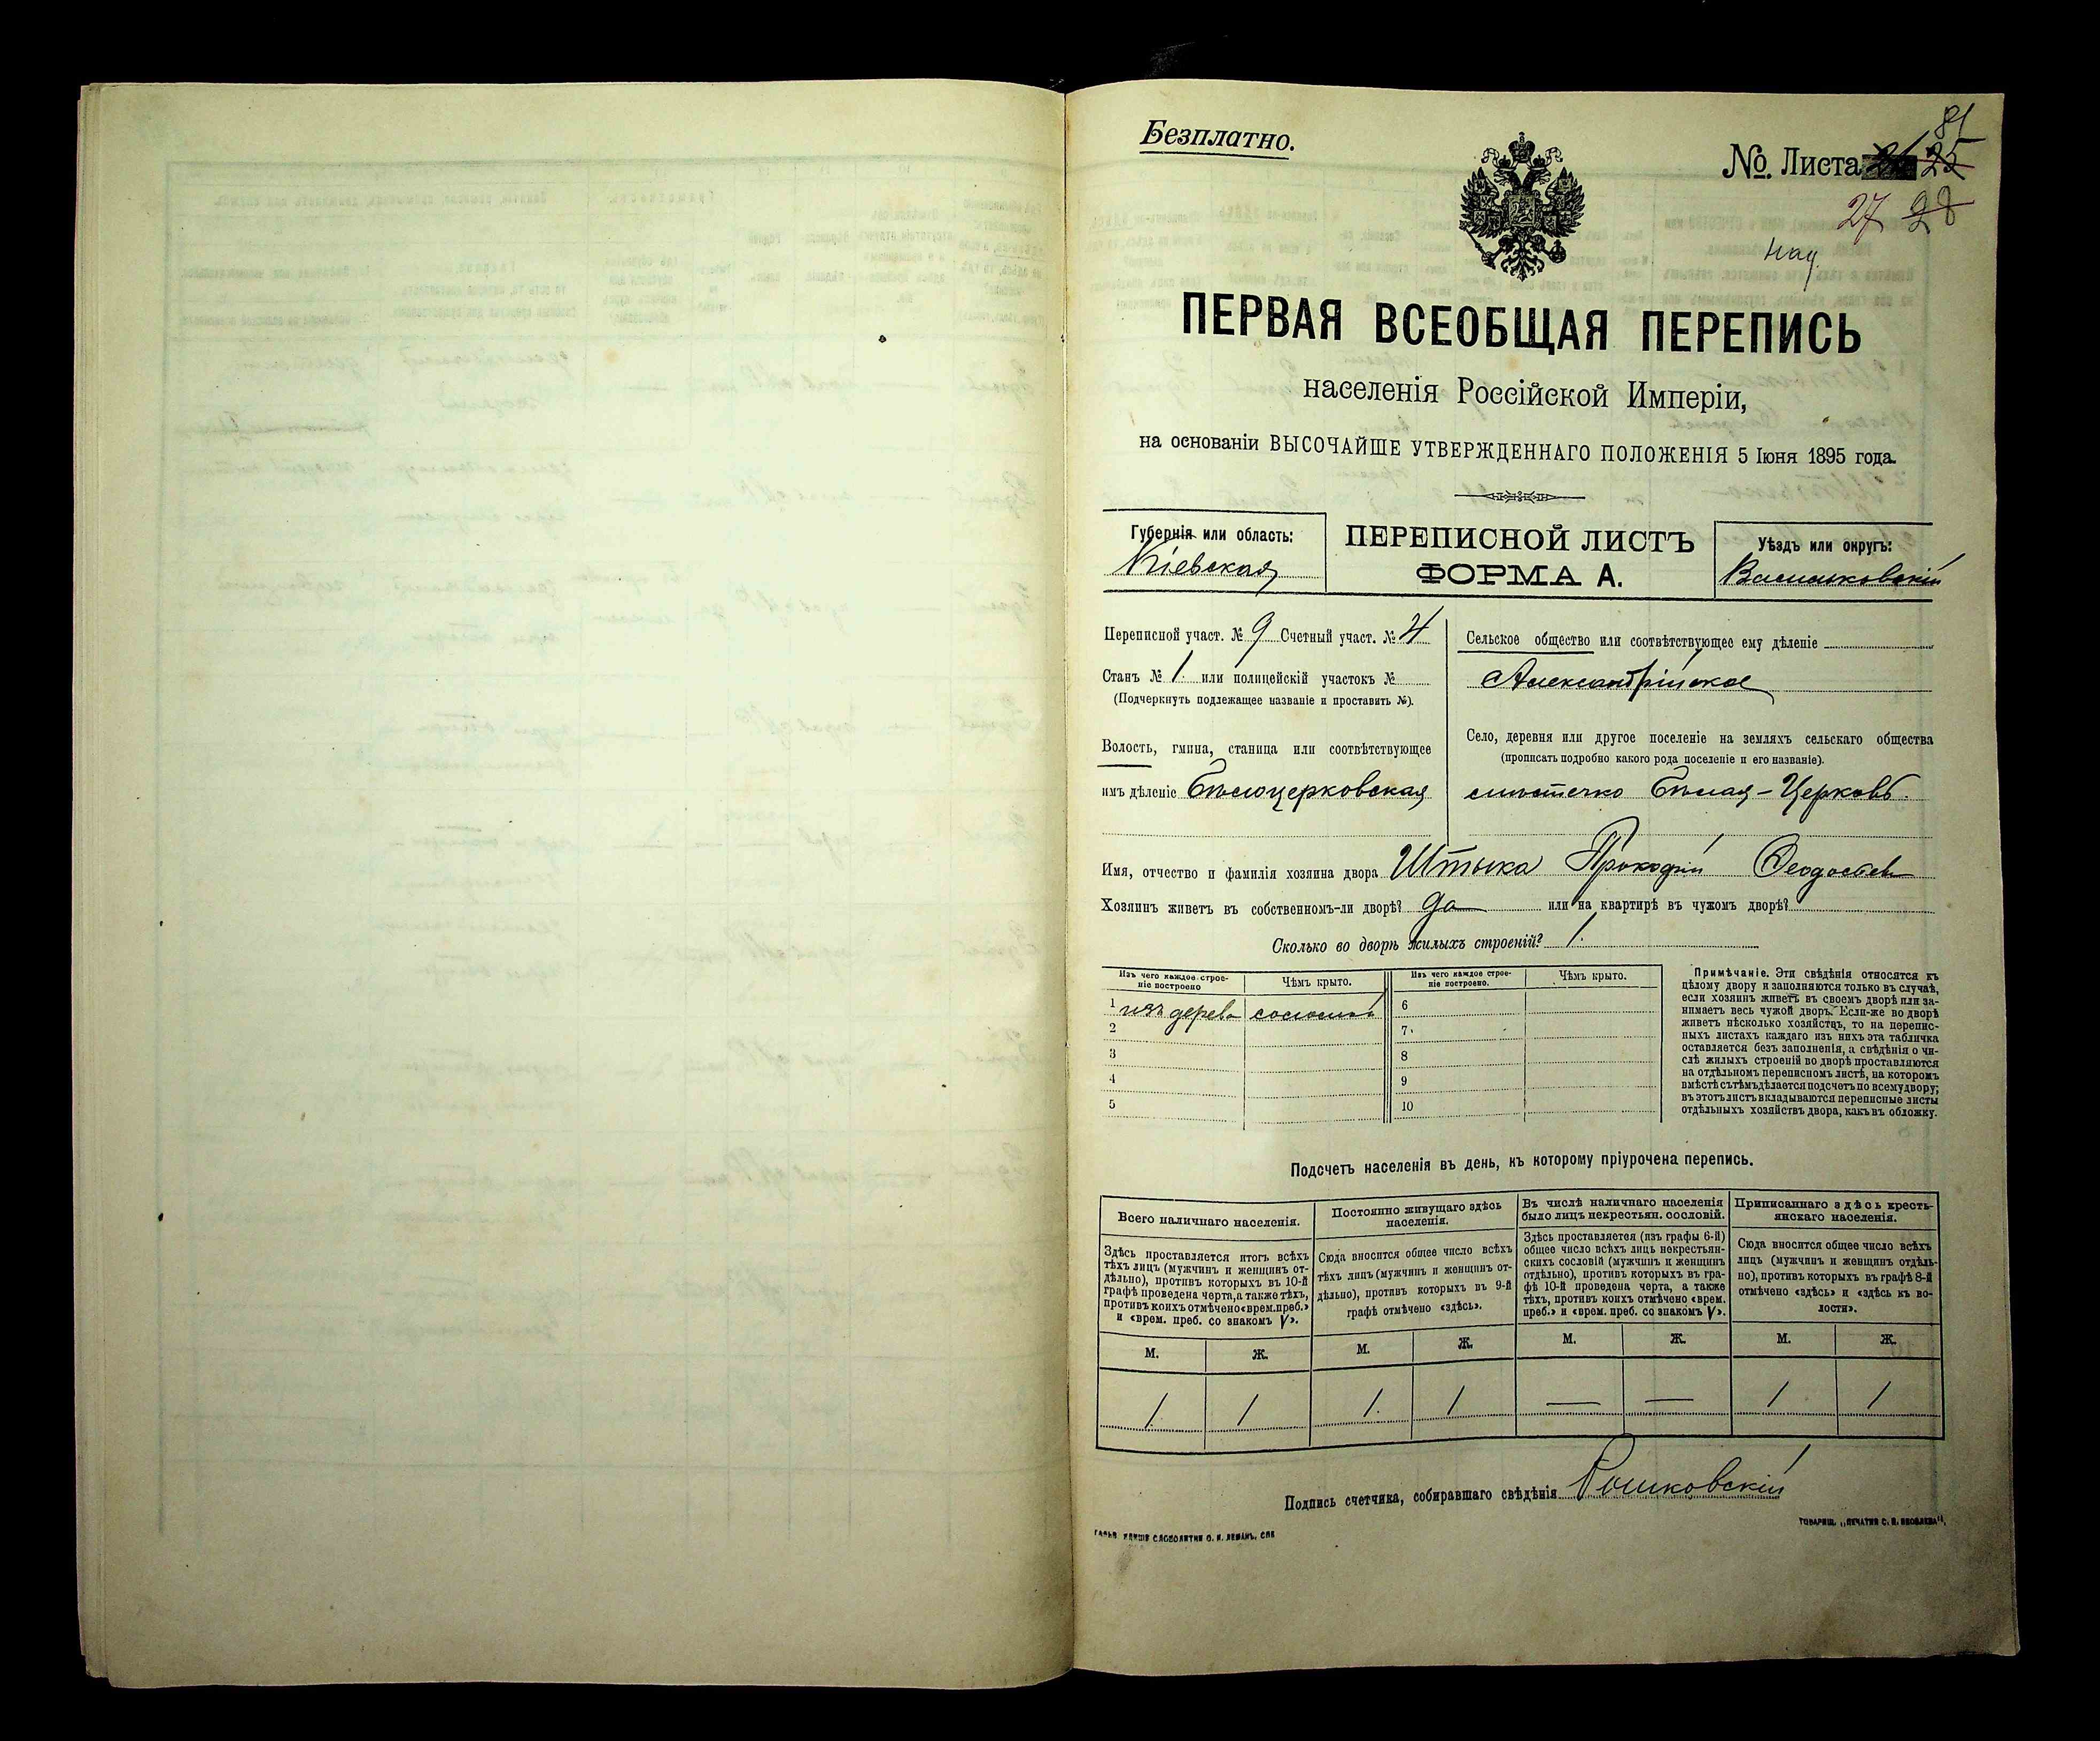 81
Безплатно.
№. Листа 25
27 28
ПЕРВАЯ ВСЕОБЩАЯ ПЕРЕПИСЬ
населенія Россійской Имперіи,
на основаніи ВЫСОЧАЙШЕ УТВЕРЖДЕННАГО ПОЛОЖЕНІЯ 5 Іюня 1895 года.
Губернія или область:
Кіевская
ПЕРЕПИСНОЙ ЛИСТЪ
ФОРМА А.
Уѣздъ или округъ:
Васильковскій
Переписной участ. № 9 Счетный участ. № 4
Станъ № 1. или полицейскій участокъ №
(Подчеркнуть подлежащее названіе и проставить №).
Волость, гмина, станица или соотвѣтствующее
имъ дѣленіе Бѣлоцерковская
Сельское общество или соотвѣтствующее ему дѣленіе
Александрійское
Село, деревня или другое поселеніе на земляхъ сельскаго общества
(прописать подробно какого рода поселеніе и его названіе).
мѣстечко Бѣлая-Церковь.
Имя, отчество и фамилія хозяина двора Штыка Прокофій Феодосіев
Хозяинъ живетъ въ собственномъ-ли дворѣ? да или на квартирѣ въ чужомъ дворѣ?
Сколько во дворѣ жилыхъ строеній? 1.
Изъ чего каждое строе-
ніе построено
Чѣмъ крыто.
Изъ чего каждое строе-
ніе построено.
Чѣмъ крыто.
1 изъ дерева соломой
2
3
4
5
6
7
8
9
10
Примѣчаніе. Эти свѣдѣнія относятся къ
цѣлому двору и заполняются только въ случаѣ,
если хозяинъ живетъ въ своемъ дворѣ или за-
нимаетъ весь чужой дворъ. Если-же во дворѣ
живетъ нѣсколько хозяйствъ, то на перепис-
ныхъ листахъ каждаго изъ нихъ эта табличка
оставляется безъ заполненія, а свѣдѣнія о чи-
слѣ жилыхъ строеній во дворѣ проставляются
на отдѣльномъ переписномъ листѣ, на которомъ
вмѣстѣ съ тѣмъ дѣлается подсчетъ по всему двору;
въ этотъ листъ вкладываются переписные листы
отдѣльныхъ хозяйствъ двора, какъ въ обложку.
Подсчетъ населенія въ день, къ которому пріурочена перепись.
Всего наличнаго населенія.
Здѣсь проставляется итогъ всѣхъ
тѣхъ лицъ (мужчинъ и женщинъ от-
дѣльно), противъ которыхъ въ 10-й
графѣ проведена черта, а также тѣхъ,
противъ коихъ отмѣчено «врем. преб.»
и «врем. преб. со знакомъ V».
Постоянно живущаго здѣсь
населенія.
Сюда вносится общее число всѣхъ
тѣхъ лицъ (мужчинъ и женщинъ от-
дѣльно), противъ которыхъ въ 9-й
графѣ отмѣчено «здѣсь».
Въ числѣ наличнаго населенія
было лицъ некрестьян. сословій.
Здѣсь проставляется (изъ графы 6-й)
общее число всѣхъ лицъ некрестьян-
скихъ сословій (мужчинъ и женщинъ
отдѣльно), противъ которыхъ въ гра-
фѣ 10-й проведена черта, а также
тѣхъ, противъ коихъ отмѣчено «врем.
преб.» и «врем. преб. со знакомъ V».
Приписаннаго здѣсь кресть-
янскаго населенія.
Сюда вносится общее число всѣхъ
лицъ (мужчинъ и женщинъ отдѣль-
но), противъ которыхъ въ графѣ 8-й
отмѣчено «здѣсь» и «здѣсь къ во-
лости».
М. Ж. М. Ж. М. Ж. М. Ж.
1 1 1. 1 — — 1 1
Подпись счетчика, собиравшаго свѣдѣнія
ТОВАРИЩ. „ПЕЧАТНЯ С. П. ЯКОВЛЕВА“.